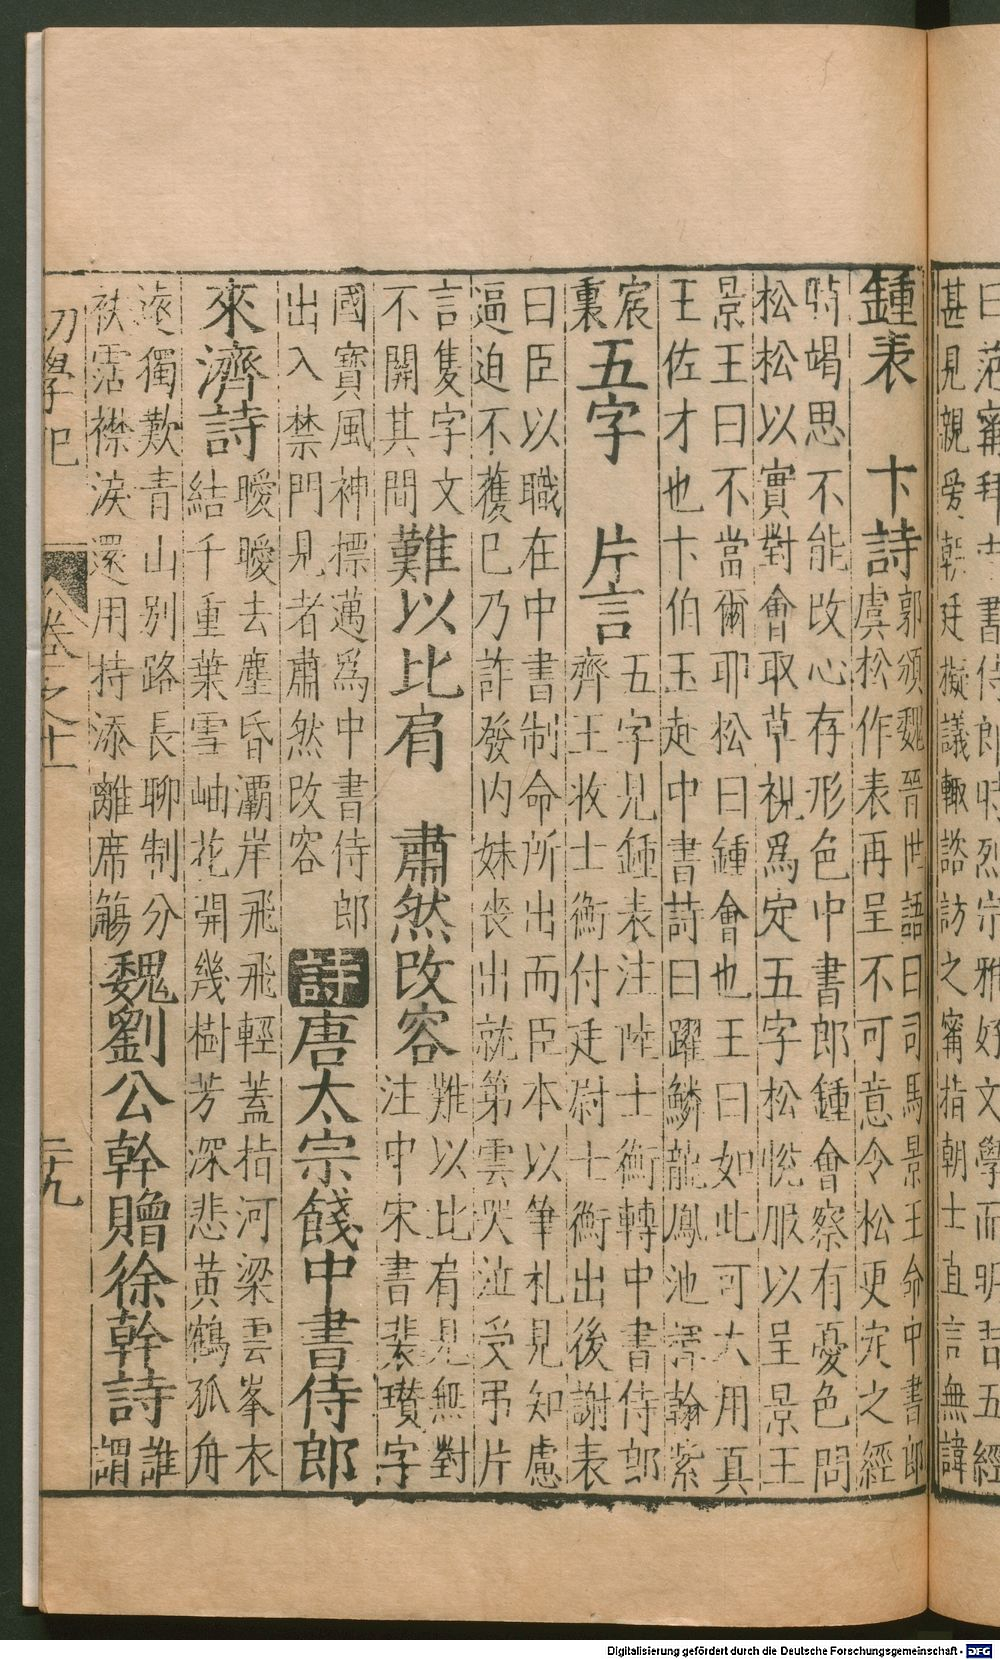 曰范甯拜中書侍郎時烈宗雅好文學而明喆五經
甚見親愛朝廷擬議輙諮訪之甯指朝士直言無諱
鍾表　卞詩郭頒魏晉世語曰司馬景王命中書郎
虞松作表再呈不可意令松更定之經
時竭思不能改心存形色中書郎鍾會察有憂色問
松松以實對會取草視爲定五字松悅服以呈景王
景王曰不當爾耶松曰鍾會也王曰如此可大用真
王佐才也卞伯玉赴中書詩曰躍鱗龍鳳池濡翰紫
宸
裏
五字　片言五字見鍾表注陸士衡轉中書侍郎
齊王收士衡付廷尉士衡出後謝表
曰臣以職在中書制命所出而臣本以筆札見知慮
逼迫不獲已乃詐發內妹喪出就第雲哭泣受弔片
言隻字文
不關其間
難以比肩　肅然改容難以比肩見無對
注中宋書裴瓚字
國寶風神標邁爲中書侍郎
出入禁門見者肅然改容
詩唐太宗餞中書侍郎
來濟詩曖曖去塵昏灞岸飛飛輕蓋指河梁雲峯衣
結千重葉雪岫花開幾樹芳深悲黃鶴孤舟
遠獨歎青山別路長聊制分
袂霑襟淚還用持添離席觴
魏劉公幹贈徐幹詩誰
謂
初學記
卷之十一
二十九
Digitalisierung gefördert durch die Deutsche Forschungsgemeinschaft - DFG